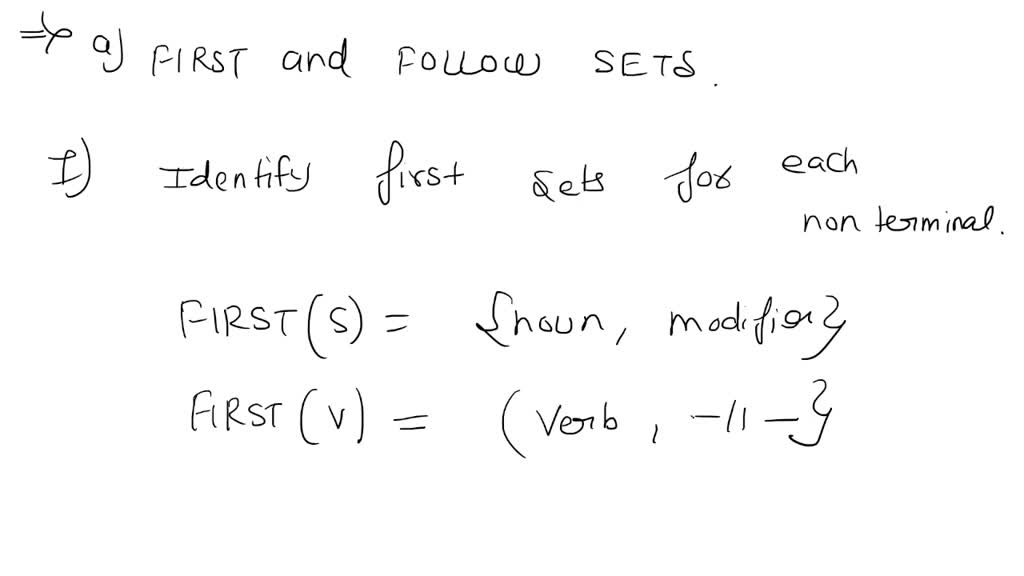 ⇒ a) FIRST and FOLLOW SETS.
I) Identify first sets for each
non terminal.
FIRST(S) = {noun, modifier}
FIRST(V) = (Verb, -11-}